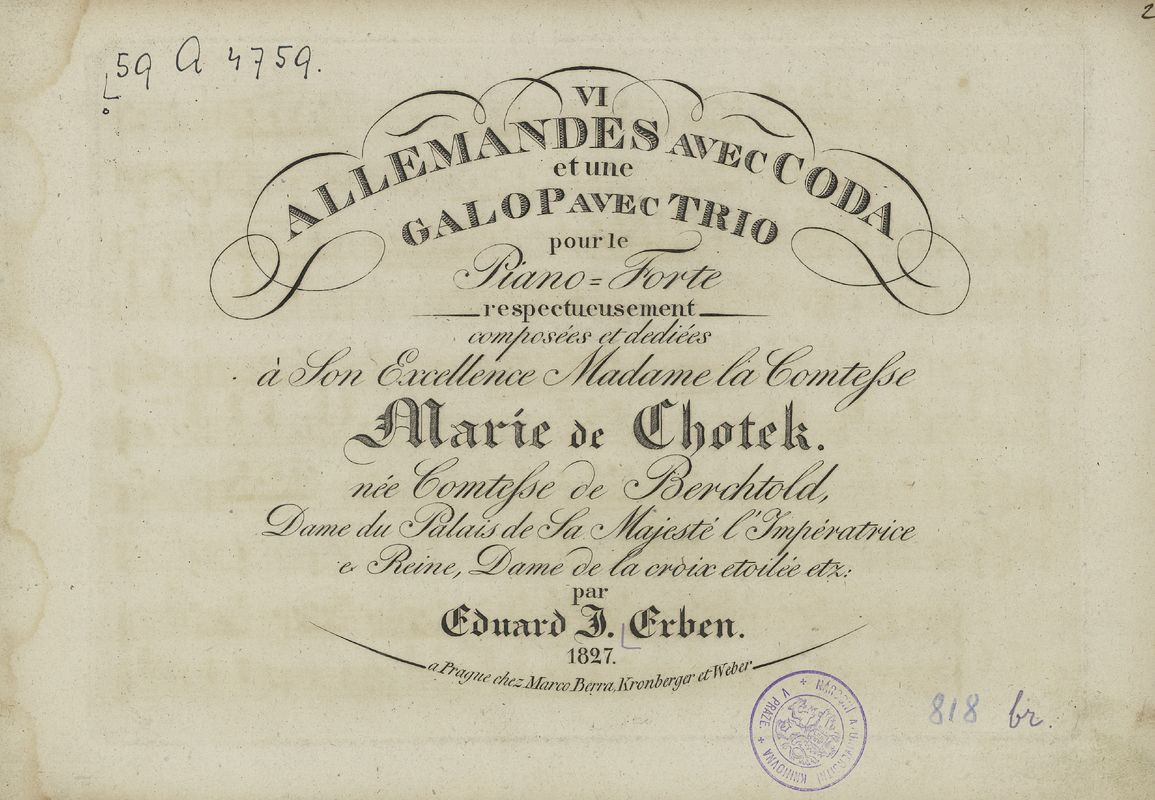 2
59 A 4759.
VI
ALLEMANDES AVEC CODA
et une
GALOP AVEC TRIO
pour le
Piano=Forte
respectueusement
composées et dediées
à Son Excellence Madame la Comteſse
Marie de Chotek.
née Comteſse de Berchtold,
Dame du Palais de Sa Majesté l'Impératrice
e Reine, Dame de la croix etoilée etz:
par
Eduard I. Erben.
1827.
a Prague chez Marco Berra, Kronberger et Weber
NÁRODNÍ A UNIVERSITNÍ KNIHOVNA + V PRAZE +
818 br.